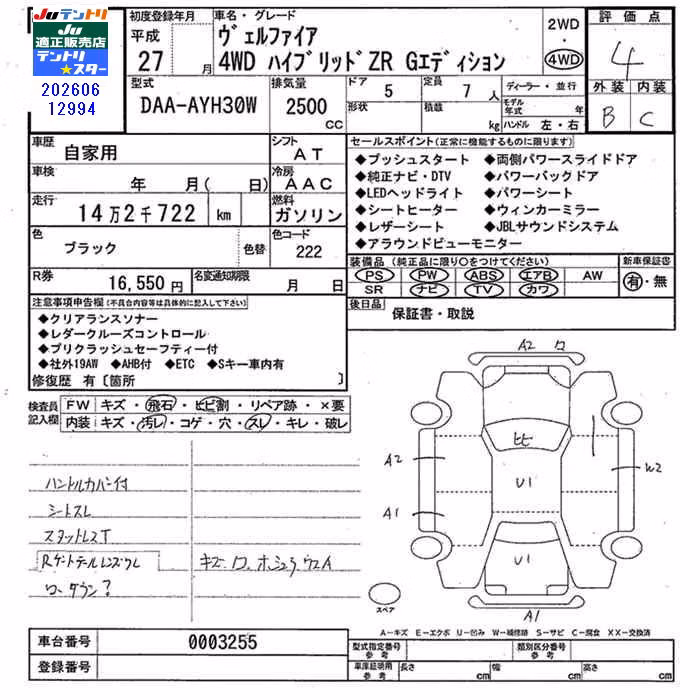 Juテントリ
Ju
適正販売店
テントリ
★スター
202606
12994
初度登録年月
平成
27 月
車名・グレード
ヴェルファイア
4WD ハイブリッド ZR Gエディション
2WD
・
4WD
評価点
4
外装 内装
B C
型式
DAA-AYH30W
排気量
2500
CC
ドア
5
形状
定員
7 人
積載
kg
ディーラー・並行
モデル年式 年
ハンドル 左・右
車歴
自家用
シフト
AT
車検
年 月( 日)
冷房
AAC
走行
14万2千722 km
燃料
ガソリン
色
ブラック
色替
色コード
222
R券
16,550円
名変通知期限
月 日
セールスポイント(正常に機能するものに限ります)
◆プッシュスタート ◆両側パワースライドドア
◆純正ナビ・DTV ◆パワーバックドア
◆LEDヘッドライト ◆パワーシート
◆シートヒーター ◆ウィンカーミラー
◆レザーシート ◆JBLサウンドシステム
◆アラウンドビューモニター
装備品(純正品に限り○をつけてください)
PS PW ABS エアB AW
SR ナビ TV カワ
新車保証書
有・無
後日品
保証書・取説
注意事項申告欄(不具合内容等は具体的に記入して下さい)
◆クリアランスソナー
◆レダークルーズコントロール
◆プリクラッシュセーフティー付
◆社外19AW ◆AHB付 ◆ETC ◆Sキー車内有
修復歴 有〔箇所 〕
検査員記入欄
FW キズ・飛石・ヒビ割・リペア跡・×要
内装 キズ・汚レ・コゲ・穴・スレ・キレ・破レ
ハンドルカバー付
シートスレ
スタットレスT
Rゲートテールレンズワレ
ローダウン?
キズ ロ、ホシュウ ウスA
A2 ロ
A2
A1
ヒビ
U1
U1
W2
A1
スペア
A-キズ E-エクボ U-凹み W-補修跡 S-サビ C-腐食 XX-交換済
車台番号
0003255
登録番号
型式指定番号 参考
類別区分番号 参考
車庫証明用 参考
長さ cm
幅 cm
高さ cm